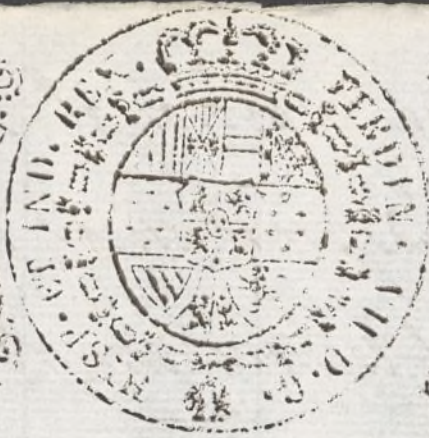 FERDIN. VII D. G. HISP. ET IND. REX.